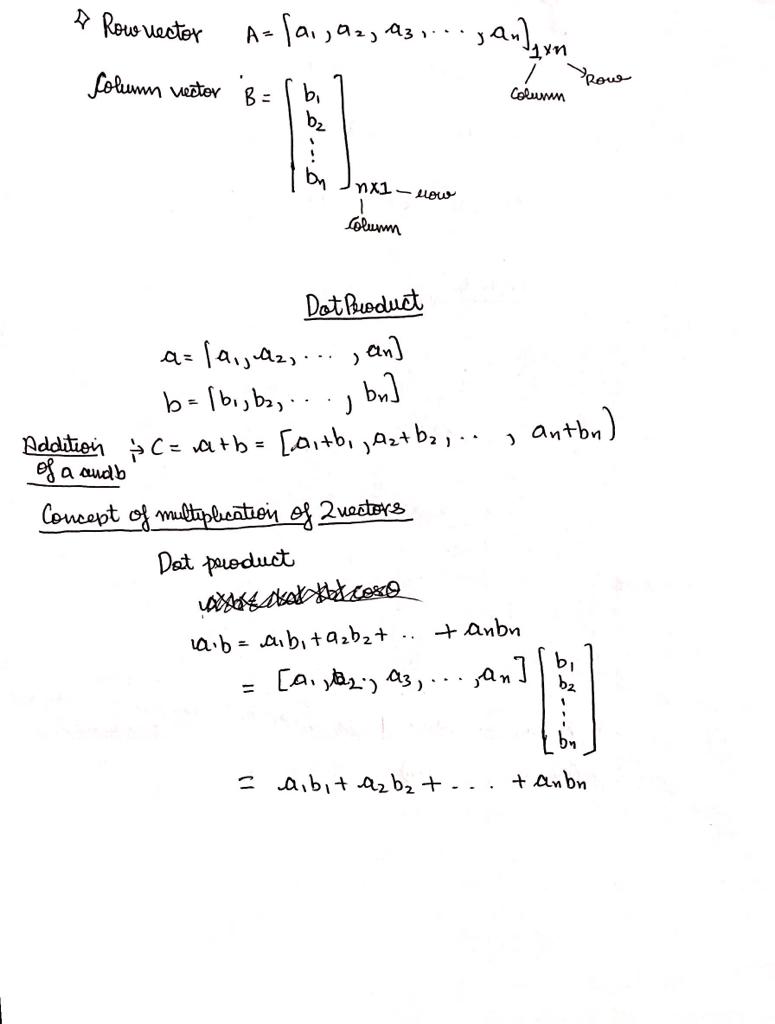 Row vector A = [a₁, a₂, a₃, ..., aₙ]₁ₓₙ
Column Row
Column vector B = [b₁
b₂
⋮
bₙ]ₙₓ₁ – row
Column
Dot Product
a = [a₁, a₂, ..., aₙ]
b = [b₁, b₂, ..., bₙ]
Addition of a and b :→ C = a+b = [a₁+b₁, a₂+b₂, .., aₙ+bₙ)
Concept of multiplication of 2 vectors
Dot product
cosθ
a.b = a₁b₁ + a₂b₂ + .. + aₙbₙ
= [a₁, a₂, a₃, ..., aₙ] [b₁
b₂
⋮
bₙ]
= a₁b₁ + a₂b₂ + ... + aₙbₙ